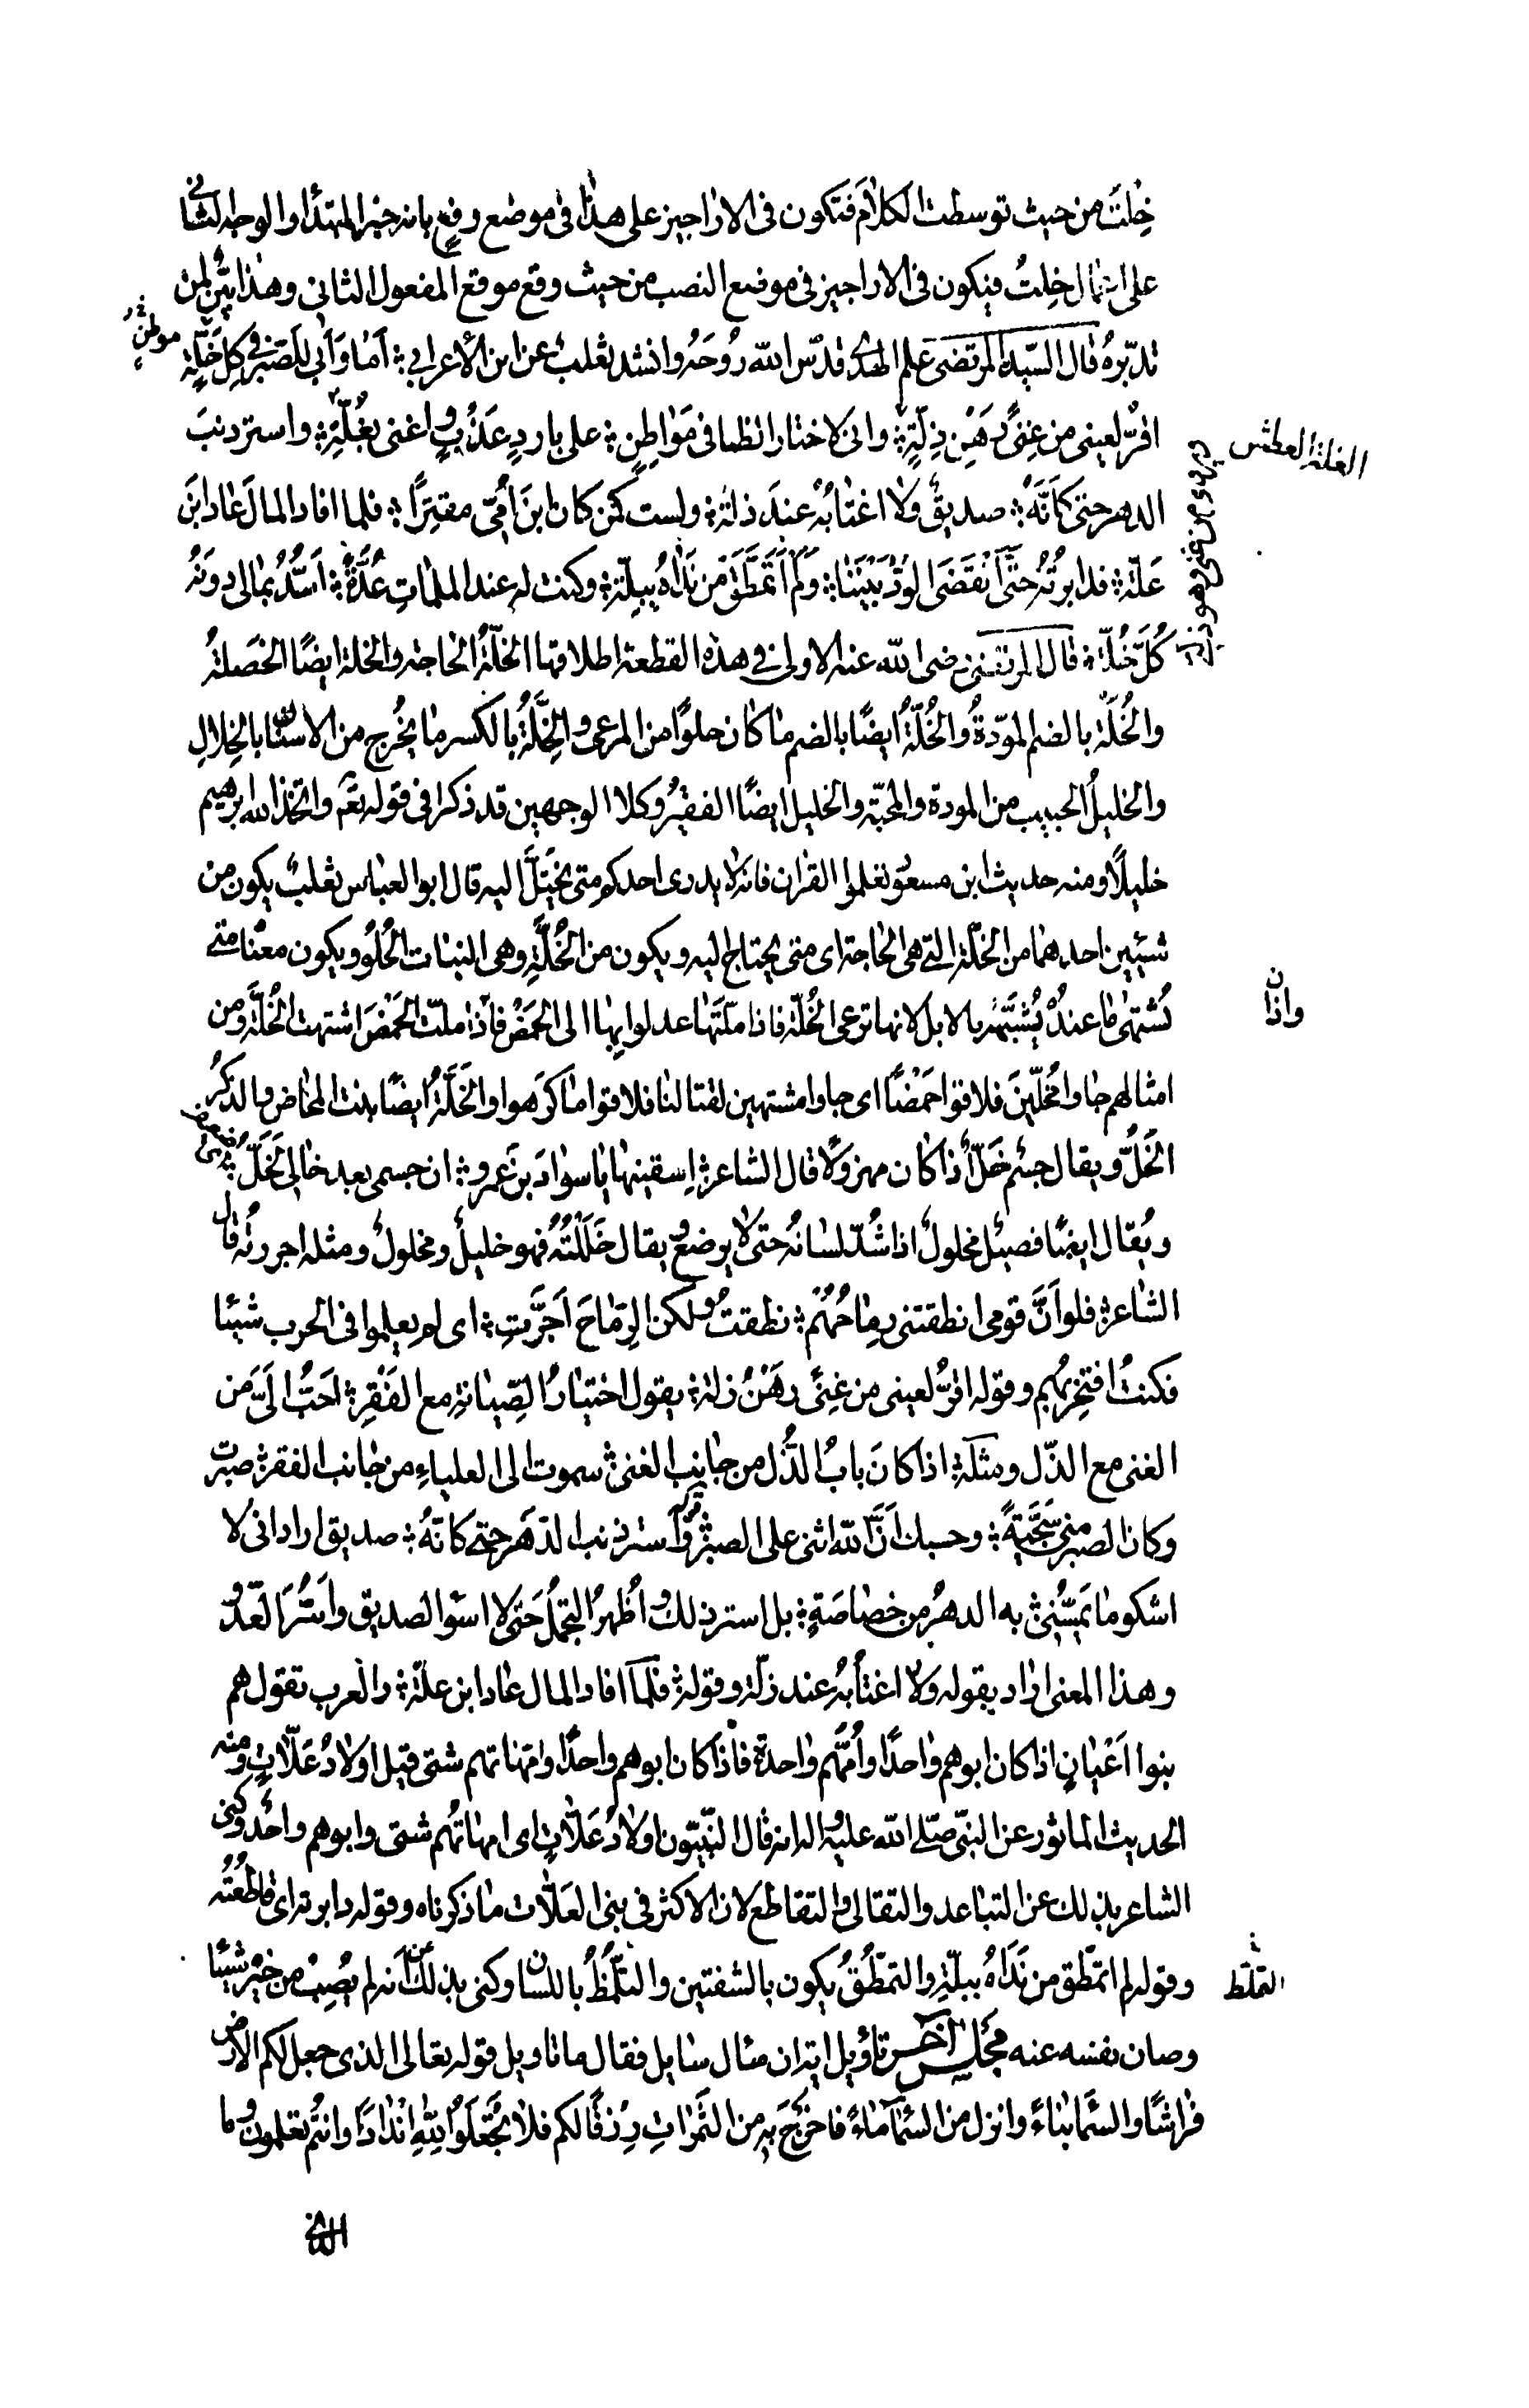 خِلتُ من حيث توسطت الكلام فتكون فى الاراجيز على هذا فى موضع رفعٍ بانه خبر المبتدأ والوجه الثانى
على اعمال خِلتُ فيكون فى الاراجيز فى موضع النصب من حيث وقع موقع المفعول الثانى وهذا بيّن لمن
تدبّره قال السيّد المرتضى علم الهدى قدّس الله رُوحَهُ وانشد ثعلب عن ابن الأعرابي ؛ اَمَا وَاَبِى لَلصَّبْرُ فى كل خَلّةٍ
موطنٍ
اقرُّ لعينى من غِنىً رَهْنِ ذِلّةٍ ؛ وانى لاختار الظما فى مَوَاطِنٍ ؛ على باردٍ عَذْبٍ واغنى بغُلّةٍ ؛ واستر ذنبَ
الغلة العطش
الدهر حتى كَاَنَّهُ ؛ صديقٌ ولا اغتابُهُ عندَ ذلّة ؛ ولست كمن كان ابنَ اُمّى مقتِرًا ؛ فلما افاد المالَ عاد ابنَ
عَلّة ؛ فدابرتُهُ حتّى اَنْقَضَى الوُدُّ بَيْنَنَا ؛ وَلَمْ اَتَمَطَّقْ مِن نَدَاهُ بِبِلّةٍ ؛ وكنت له عند الملمات عُدَّةً ؛ اَسُدُّ بمالى دونَهُ
كُلَّ خُلّة ؛ قال المرتضى رضى الله عنه الاولى فى هذه القطعة اطلاقها الخَلّةُ الحاجة والخلة ايضًا الخَصلةُ
والخُلّة بالضم المودّةُ والخُلّةُ ايضًا بالضم ما كان حلوًا من المرعى والخِلَّةُ بالكسر ما يُخرج من الاسنان بالخِلالِ
والخليلُ الحبيب من المودة والمحبّة والخليل ايضًا الفقيرُ وكلا الوجهين قد ذكرا فى قوله تعم واتخذ الله ابرهيم
خليلًا ومنه حديث ابن مسعود تعلموا القران فانه لا يدرى احدكم متى يُختَلُّ اليه قال ابو العباس ثعلبٌ يكون من
شيئين احدهما من الخَلّة التى هى الحاجة اى متى يحتاج اليه ويكون من الخُلَّةِ وهى النبات الحُلوُ ويكون معناه متى
تُشتهى ما عندهُ يُشبَّهُ بالابل لانها ترعى الخُلّة فاذا ملّتها عدلوا بها الى الحَمْضِ فاذا ملّت الحَمْضَ اشتهت الخُلّةَ ومن
واذان
امثالهم جاوا مُخلّينَ فلاقوا حَمْضًا اى جاوا مشتهين لقتالنا فلاقوا ما كَرِهوا والخَلَّةُ ايضًا بنت المخاض والذكرُ
الخَلُّ ويقال جسمٌ خَلٌّ اذا كان مهزولًا قال الشاعر ؛ اِسقينها يا سوادَ بنَ عمرو ؛ ان جسمى بعد خالى لَخَلّ
ويُقال ايضًا فصيلٌ مخلولٌ اذا شُدّ لسانُهُ حتى لا يرضع ويقال خَلَلْتُهُ فهو خليلٌ ومخلولٌ ومثله اجررتُه قال
الشاعر ؛ فلو اَنَّ قومى انطقتنى رِماحُهُم ؛ نطقتُ ولكن الرِّماحَ اَجَرَّتِ ؛ اى لم يعملوا فى الحرب شيئا
فكنتُ افتخر بهم وقوله اقرُّ لعينى من غِنىً رَهْنُ ذلة ؛ يقول اختيارُ الصِّيانةِ مع الفَقْرِ ؛ اَحَبُّ الَىَّ من
الغنى مع الذّل ومثله ؛ اذا كان بابُ الذُّل من جانب الغنى ؛ سموت الى العلياءِ من جانب الفقر ؛ صبرت
وكان الصبر منى سَجّيةً ؛ وحسبك اَنَّ الله اثنى على الصبر ؛ وقوله وَاَستر ذنب الدّهر حتى كانّهُ ؛ صديق اراد انى لا
اشكو ما يَمسُّنى به الدهرُ من خصاصةٍ ؛ بل استر ذلك واُظهرُ التجمُّلَ حتى لا اسوُ الصديق واَسُرَّ العدُوَّ
وهذا المعنى اراد بقوله ولا اغتابُهُ عند زلّة وقوله ؛ فلمّا افاد المال عاد ابن علّة ؛ والعرب تقول هم
بنوا اَعْيانٍ اذا كان ابوهم واحدًا واُمّهُم واحدة فاذا كان ابوهم واحدًا وامهاتهم شتى قيل اولادُ عَلّاتٍ ومنه
الحديث الماثور عن النبىّ صلّى الله عليه واله انه قال النبيّون اولادُ عَلّاتٍ اى امهاتُهُم شتى وابوهم واحدٌ وكنى
الشاعر بذلك عن التباعد والتقالى والتقاطع لان الاكثر فى بنى العَلّات ما ذكرناه وقوله دابرته اى قاطعتُه
وقوله لم اتمطّق من نَدَاهُ ببلّةٍ والتمطُّقُ يكون بالشفتين والتلمُّظُ باللسان وكنى بذلك عن اَنه لم يُصِبْ من خيره شيئًا
التلمّظ
وصان نفسه عنه مجلس آخر تاويل اية ان سال سايل فقال ما تاويل قوله تعالى الذى جعل لكم الارض
فراشًا والسّماءَ بناءً وانزل من السّماءِ ماءً فاخرَجَ به من الثَّمَراتِ رِزقًا لكم فلا تَجْعَلُوا لِلّهِ اَنْدَادًا وانتُم تعلمون وما
الذى